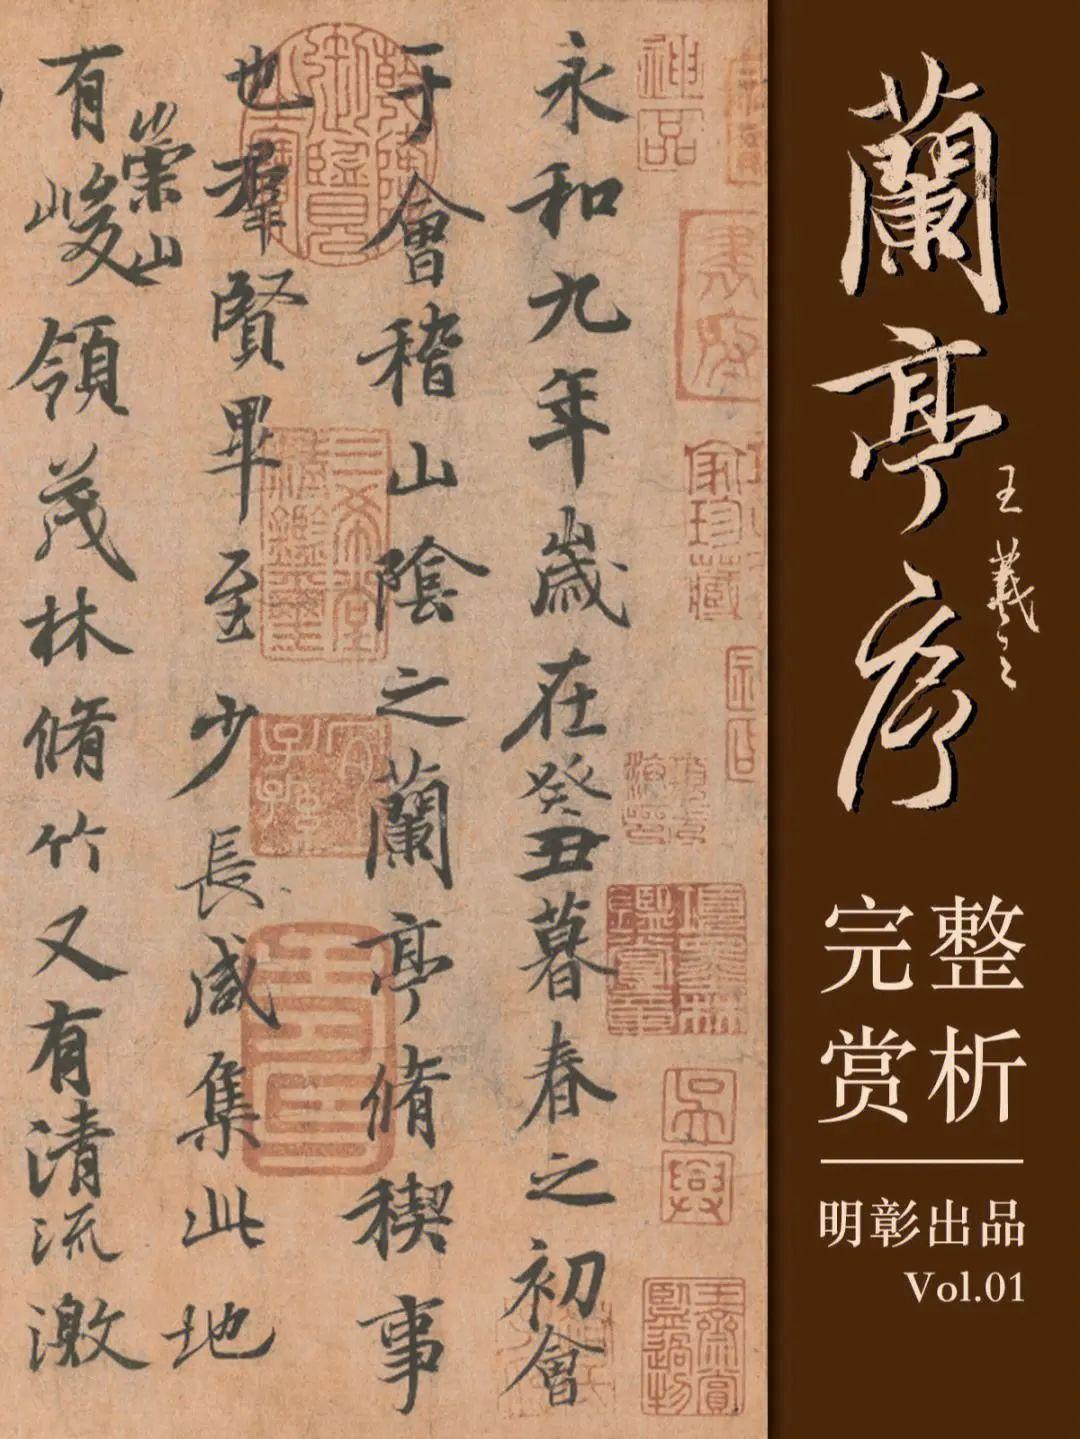 蘭亭序
王羲之
完整
赏析
明彰出品
Vol.01
神品
家珍藏
永和九年歲在癸丑暮春之初會
于會稽山陰之蘭亭脩稧事
也羣賢畢至少長咸集此地
有崇山峻領茂林脩竹又有清流激